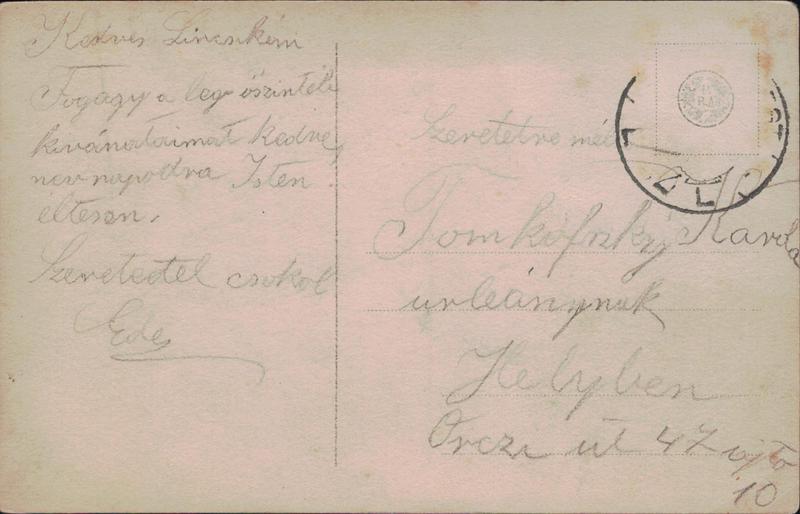 Kedves Lincsikém
Fogagy a leg öszintéb
kivánataimat kedves
nevnapodra Isten
éltessn.
Szeretettel csokol
Ede
Szeretetre mél
Tomkófszky Karola
urleánynak
Helyben
Orczi út 47 ajto
10